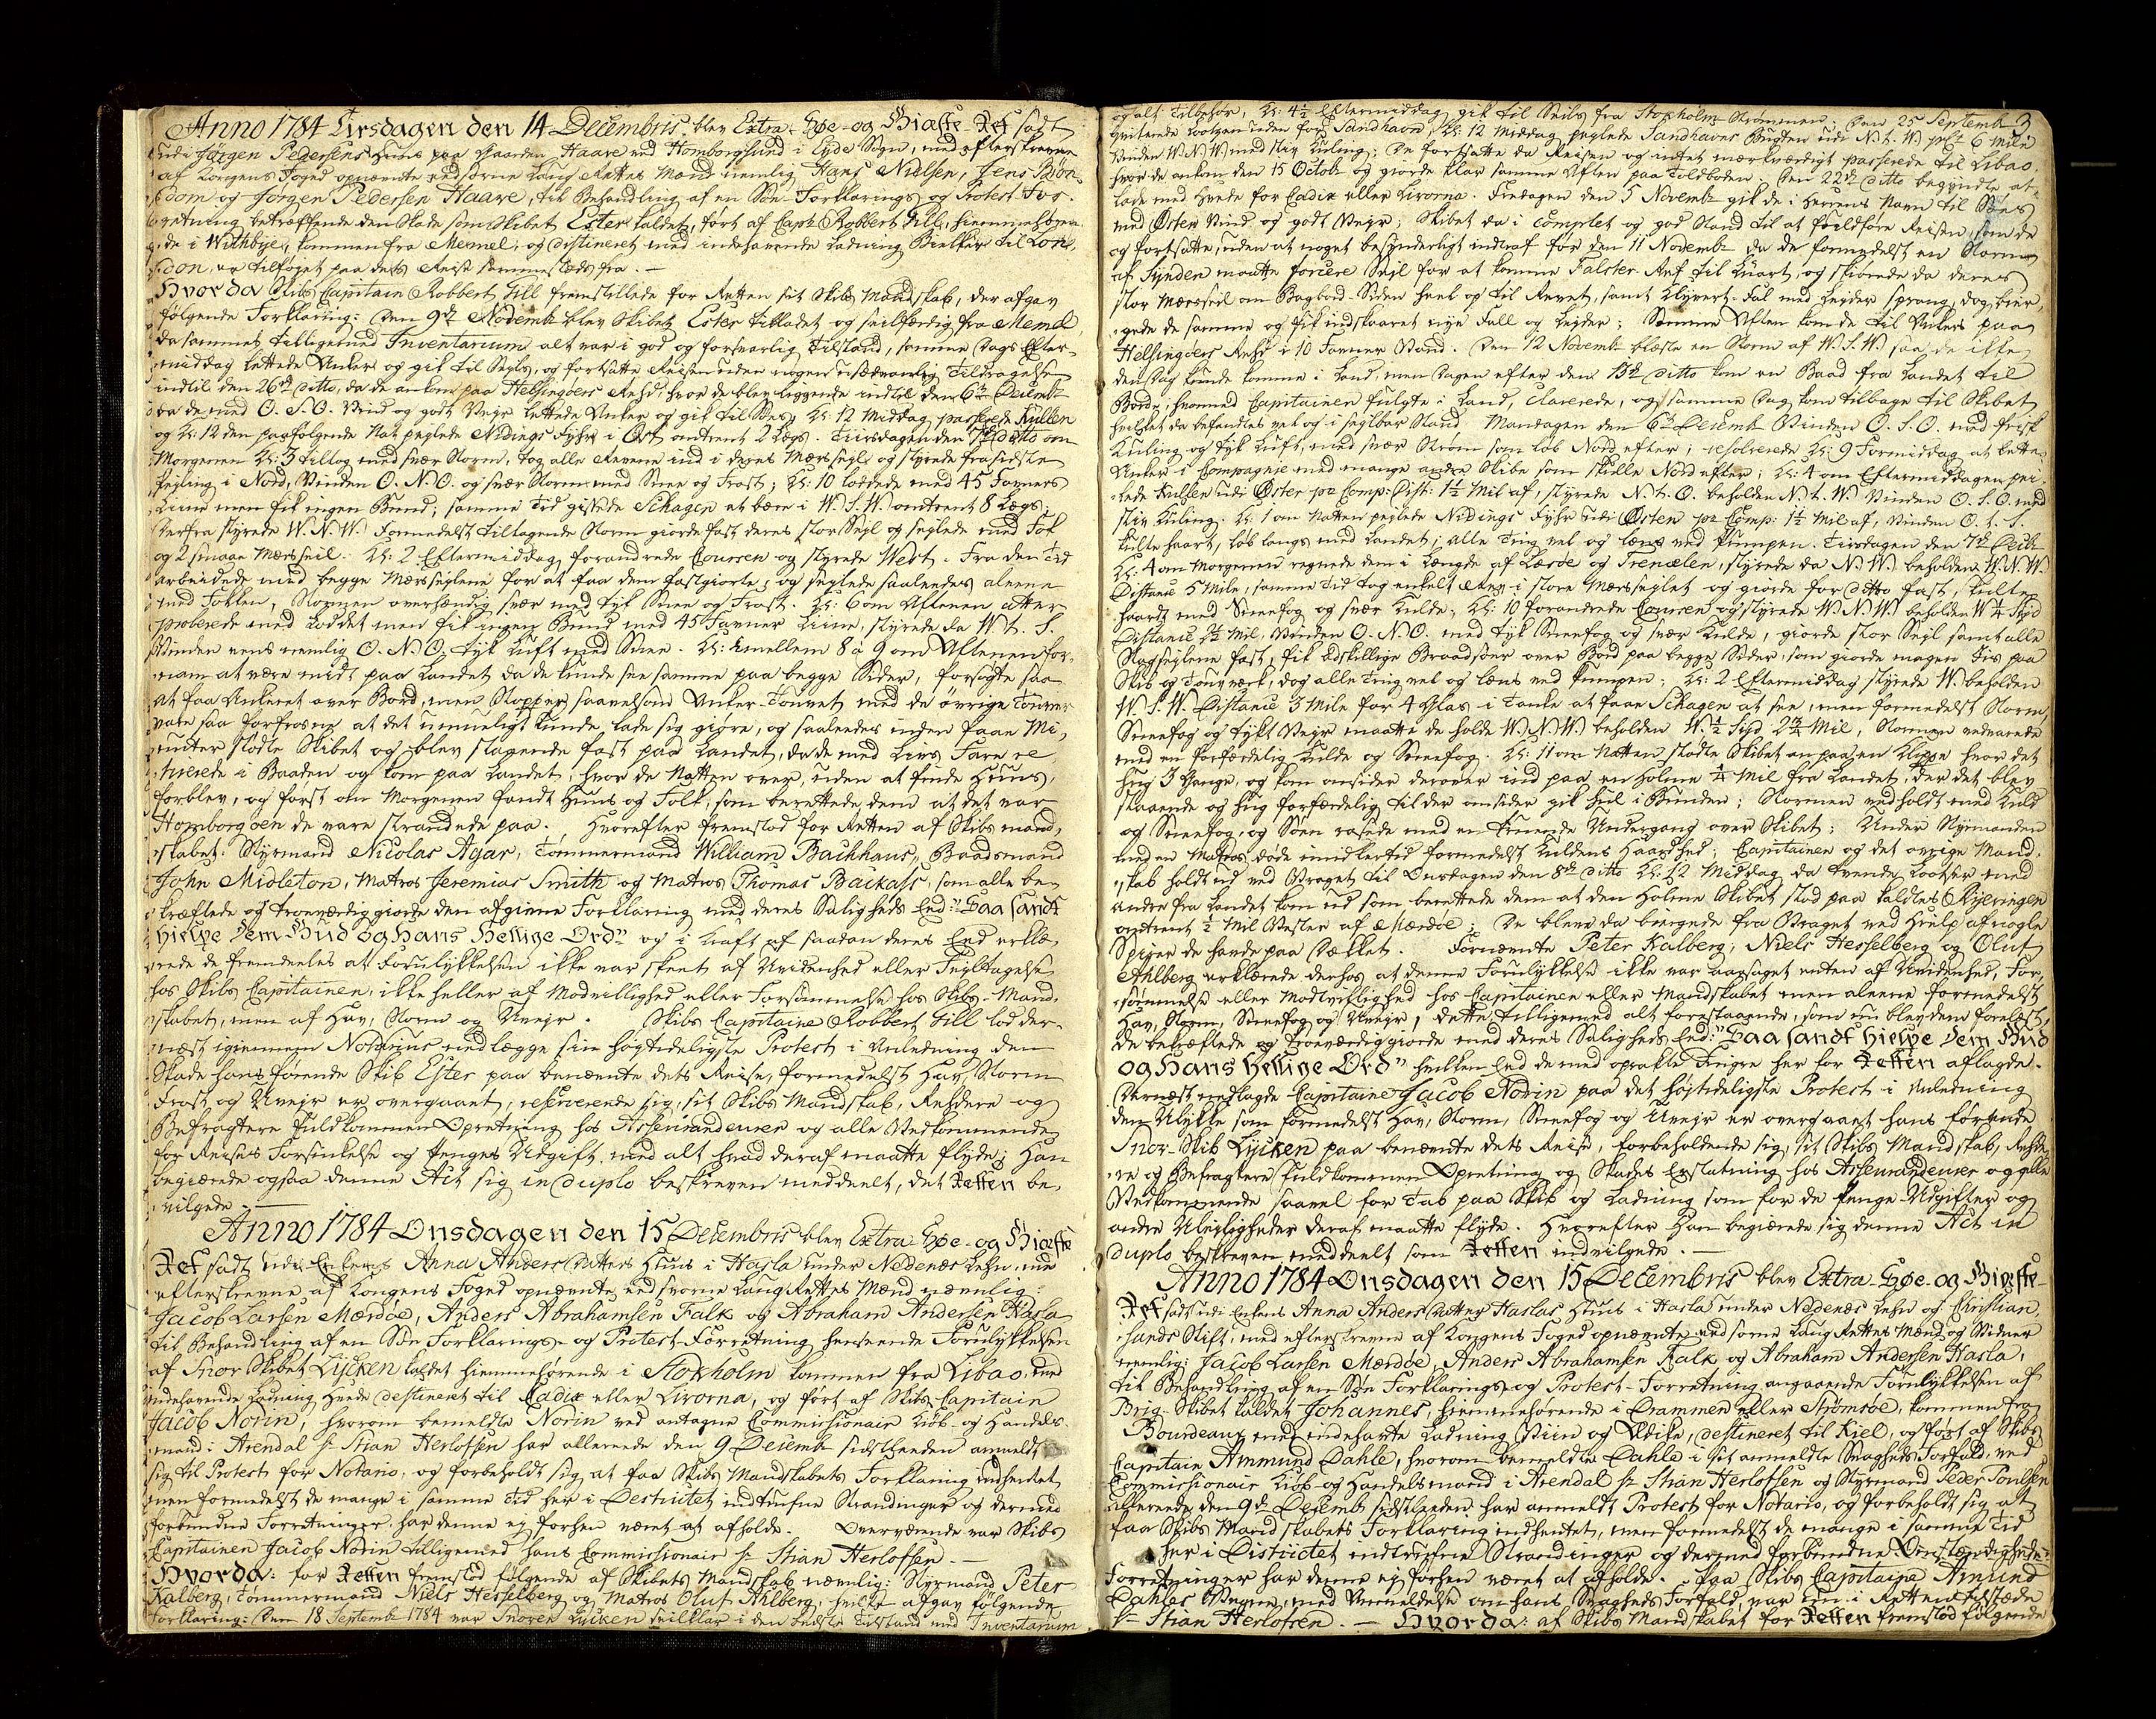 Anno 1784 Tirsdagen den 14 Decembris blev Extra-Søe- og Giæste-Ret sadt
udi Jørgen Pedersens Huus paa Gaarden Haave ved Homborgsund i Eyde Sogn, med efterskrevne
af Kongens Foged opnævnte eedsorne Laug-Rettes Mænd nemlig Hans Nielsen, Jens Bøn-
dom og Jørgen Pedersen Haave, til Behandling af en Søe-Forklarings og Protest For-
retning betræffende den Skade som Skibet Ester kaldet, ført af Capt: Robbert Gill, hiemmehøren-
de i Withbye, kommen fra Memel, og destineret med indehavende Ladning Bielker til Lon-
don, er tilføyet paa dets Reise sammesteds fra. —
Hvorda Skibs Capitain Robbert Gill fremstillede for Retten sit Skibs Mandskab, der afgav
følgende Forklaring: Den 9de Novembr blev Skibet Ester tilladet og seilfærdig fra Memel,
da sammes tilligemed Inventarium alt var i god og forsvarlig Tilstand, samme Dags Efter-
middag lettede Anker og gik til Seyls, og fortsatte Reisen uden nogen usædvanlig Tildragelse
indtil den 26de ditto, da de ankom paa Helsingøers Rehd, hvor de blev liggende indtil den 6te Decembr
da de med O. S. O. Vind og godt Vejr lettede Anker og gik til Søes, Kl: 12 Middag passerede Kullen
og Kl: 12 den paafølgende Nat peylede Nidings Fyhr i Øst omtrent 2 Legs. Tiirsdagen den 7de ditto om
Morgenen Kl: 3 tiltog med svær Storm, tog alle Revene ind i deres Mærsseyle og styrede fra sidste
Peyling i Nord, Vinden O. N. O. og svær Storm med Snee og Frost; Kl: 10 loddede med 45 Favners
Liine men fik ingen Bund; samme Tid gissede Schagen at være i W. S. W. omtrent 8 Legs;
derfra styrede W. N. W. Formedelst tiltagende Storm giorde fast deres stor Seyl og seylede med Fok
og 2 smaae Mærsseil. Kl: 2 Eftermiddag forandrede Coursen og styrede West. Fra den Tid
arbeidede med begge Mærsseylene for at faa dem fastgiorte, og seylede saaledes aleene
med Fokken, Stormen overhændig svær med tyk Snee og Frost. Kl: 6 om Aftenen atter
proberede med Loddet men fik ingen Bund med 45 Favner Liine, styrede da W. t. S.
Vinden eens nemlig O. N. O. tyk Luft med Snee. Kl: imellem 8 à 9 om Aftenen for-
nam at være midt paa Landet da de kunde see samme paa begge Sider, forsøgte saa
at faa Ankeret over Bord, men Stopper saavelsom Anker-Touvet med de øvrige Touver
vare saa forfrosne at det umueligt kunde lade sig giøre, og saaledes inden faae Mi-
nuter stødte Skibet og blev staaende fast paa Landet, da de med Livs Fare re-
tirerede i Baaden og kom paa Landet, hvor de Natten over, uden at finde Huus,
forblev, og først om Morgenen fandt Huus og Folk, som berettede dem at det var
Homborgøen de vare strandede paa. Hvorefter fremstod for Retten af Skibs mand-
skabet: Styrmand Nicolas Agar, Tømmermand William Backhaus, Baadsmand
John Midleton, Matros Jeremias Smith og Matros Thomas Backass, som alle be-
kræftede og troværdiggiorde den afgivne Forklaring med deres Saligheds Eed: "Saa sandt
hielpe dem Gud og hans Hellige Ord" og i Kraft af saadan deres Eed erklæ-
rede de fremdeeles at Forulykkelsen ikke var skeet af Uvidenhed eller Feyltagelse
hos Skibs Capitainen, ikke heller af Modvillighed eller Forsømmelse hos Skibs-Mand-
skabet, men af Hav, Storm og Uvejr. Skibs Capitaine Robbert Gill lod der-
næst igiennem Notarius nedlægge sin høytideligste Protest i Anledning den
Skade hans førende Skib Ester paa benævnte dets Reise, formedelst Hav, Storm
Frost og Uvejr er overgaaet, reserverende sig, sit Skibs Mandskab, Rehdere og
Befragtere fuldkommen Opretning hos Asseuradeurer og alle Vedkommende
for Reisens Forsinkelse og Penges Udgift med alt hvad deraf maatte flyde; Han
begiærede ogsaa denne Act sig in duplo beskreven meddeelt, det Retten be-
vilgede. —
Anno 1784 Onsdagen den 15 Decembris blev Extra-Søe- og Giæste
Ret sadt udi Enkens Anna Anders Datters Huus i Hasla under Nedenæs Lehn, med
efterskrevne af Kongens Foged opnævnte eedsvorne Laug Rettes Mænd nemlig:
Jacob Larsen Mærdøe, Anders Abrahamsen Falk og Abraham Andersen Hasla
til Behandling af en Søe Forklarings- og Protest-Forretning henseende Forulykkelsen
af Snov Skibet Lycken kaldet hiemmehørende i Stokholm kommen fra Libao, med
indehavende Ladning Hvede destineret til Cadix eller Livorna, og ført af Skibs Capitain
Jacob Norin, hvorom bemeldte Norin ved antagne Commissionair Kiøb- og Handels-
mand i Arendal Sr Stian Herlofsen har allerede den 9 Decembr sidstleeden anmeldt
sig til Protest for Notario, og forbeholdt sig at faa Skibs Mandskabets Forklaring indhentet,
men formedelst de mange i samme Tid her i Destrictet indtrufne Strandinger og dermed
forbundne Forretninger har denne ej forhen været at afholde. Overværende var Skibs
Capitainen Jacob Norin tilligemed hans Commissionair Sr Stian Herlofsen. —
Hvorda: for Retten fremstod følgende af Skibets Mandskab nemlig: Styrmand Peter
Kalberg, Tømmermand Niels Hesselberg og Matros Oluf Ahlberg, hvilke afgav følgende
Forklaring: Den 18 Septembr 1784 var Snoven Lycken seilklar i den bedste Tilstand med Inventarium
3
og alt Tilbehør, Kl: 4½ Eftermiddag gik til Seils fra Stokholms Strømmen; Den 25 Septembr
qviterede Lootzen uden for Sandhavn, Kl: 12 Middag peylede Sandhavns Bugten udi N. t. W. 6 Mile
Vinden W. N. W. med stiv Kuling; De fortsatte da Reisen og intet mærkværdigt passerede til Libao,
hvor de ankom den 15 Octobr og giorde klar samme Aften paa Toldboden. Den 22de ditto begyndte at
lade med Hvede for Cadix eller Livorna. Fredagen den 5 Novembr gik de i Herrens Navn til Søes
med Østen Vind og godt Vejr; Skibet da i complet og god Stand til at fuldføre Reisen, som de
og fortsatte, uden at noget besynderligt indtraf før den 11 Novembr da de formedelst en Storm
af Synden maatte forcere Seil for at komme Falster-Ref til Luart, og skiørede da deres
stor Mærsseil om Bagbord-Siden heel op til Revet, samt Klyvert-Fal med Leyder sprang, dog bier-
gede de samme og fik indskaaret nye Fall og Leyder; Samme Aften kom de til Ankers paa
Helsingøers Rehd i 10 Favner Vand. Den 12 Novembr blæste en Storm af W. S. W. saa de ikke
den Dag kunde komme i Land, men Dagen efter den 13de ditto kom en Baad fra Landet til
Borde, hvormed Capitainen fulgte i Land, clarerede, og samme Dag kom tilbage til Skibet
hvilket da befandtes vel og i seglbar Stand. Mandagen den 6te Decembr Vinden O. S. O. med frisk
Kuling og tyk Luft, med svær Strøm som løb Nord efter, resolverede Kl: 9 Formiddag at lette
Anker i Compagnie med mange andre Skibe som skulle Nord efter; Kl: 4 om Eftermiddagen pei-
lede Kullen udi Øster pr Comp: Dist: 1½ Mil af, styrede N. t. O. beholden N. t. W. Vinden O. S. O. med
stiv Kuling. Kl: 1 om Natten peylede Nidings Fyhr udi Østen pr Comp: 1½ Mil af, Vinden O. t. S.
kulte haart, løb langs med Landet, alle Ting vel og læns ved Pumpen. Tirsdagen den 7de Decbr
Kl: 4 om Morgenen regnede dem i Længde af Læsøe og Trendelen, styrede da N. W. beholden W. N. W.
Distance 5 Mile, samme Tid tog enkelt Rev i store Mærsseylet og giorde for ditto fast, kulte
haardt med Sneefog og svær Kulde; Kl: 10 forandrede Coursen og styrede W. N. W. beholden W ¼ Syd
Distance 2½ Mil, Vinden O. N. O. med tyk Sneefog og svær Kulde, giorde stor Seyl samt alle
Stagseylene fast, fik adskillige Braadsøer over Bord paa begge Sider, som giorde megen Iis paa
Skib og Tougværk, dog alle Ting vel og læns ved Pumpen; Kl: 2 Eftermiddag styrede W. beholden
W. S. W. Distance 3 Mile for 4 Glas i Tanke at faae Schagen at see, men formedelst Storm,
Sneefog og tykt Vejr maatte de holde W. N. W. beholden W. ½ Syd 2¾ Mil, Stormen vedvarede
med en forfærdelig Kulde og Sneefog. Kl: 11 om Natten stødte Skibet an paa en Klippe hvor det
hug 3 Gange, og kom omsider derover ind paa en Holme ¼ Mil fra Landet, der det blev
staaende og hug forfærdelig til der omsider gik Hul i Bunden; Stormen vedholdt med Kuld
og Sneefog, og Søen rasede med en truende Undergang over Skibet; Under Styrmanden
med en Matros døde imidlertid formedelst Kuldens Haardhed; Capitainen og det øvrige Mand-
skab holdt ud ved Vraget til Onsdagen den 8de ditto Kl: 12 Middag, da tvende Lootzer med
andre fra Landet kom ud som berettede dem at den Holme Skibet stod paa kaldtes Rivjeringen
omtrent ½ Mil Vester af Mærdøe; De bleve da biergede fra Vraget ved Hielp af nogle
Spirer de havde paa Dækket. Fornævnte Peter Kalberg, Niels Hesselberg og Oluf
Ahlberg erklærede derhos at denne Forulykkelse ikke var aarsaget enten af Uvidenhed, For-
sømmelse eller Modtvillighed hos Capitainen eller Mandskabet men aleene formedelst
Hav, Storm, Sneefog og Uvejr, dette tilligemed alt forestaaende, som nu blev dem forelæst,
de bekræftede og troeværdiggiorde med deres Saligheds Eed: "Saa sandt hielpe dem Gud
og Hans Hellige Ord" hvilken Eed de med oprakte Fingre her for Retten aflagde.
Dernæst nedlagde Capitaine Jacob Norin paa det høitideligste Protest i Anledning
den Ulykke som formedelst Hav, Storm, Sneefog og Uvejr er overgaaet hans førende
Snov-Skib Lycken paa benævnte dets Reise, forbeholdende sig, sit Skibs Mandskab, Rehde-
re og Befragtere fuldkommen Opretning og Skades Erstatning hos Asseuradeurer og alle
Vedkommende saavel for Tab paa Skib og Ladning som for de Penge-Udgifter og
andre Uleiligheder deraf maatte flyde. Hvorefter Han begiærede sig denne Act in
duplo beskreven meddeelt som Retten indvilgede. —
Anno 1784 Onsdagen den 15 Decembris blev Extra-Søe- og Giæste-
Ret sadt udi Enkens Anna Anders Datter Haslas Huus i Hasla under Nedenæs Lehn og Christian-
sands Stift, med efterskrevne af Kongens Foged opnævnte eedsorne Laug Rettes Mænd og Vidner
nemlig: Jacob Larsen Mærdøe, Anders Abrahamsen Falk og Abraham Andersen Hasla,
til Behandling af en Søe Forklarings og Protest-Forretning angaaende Forulykkelsen af
Brig-Skibet kaldet Johannes, hiemmehørende i Drammen eller Strømsøe, kommen fra
Bourdeaux med indehavte Ladning Viin og Ædike, destineret til Kiel, og ført af Skibs
Capitain Ammund Dahle, hvorom bemeldte Dahle i sit anmeldte Svagheds Forfald, ved
Commissionair Kiøb- og Handelsmand i Arendal Sr Stian Herlofsen og Styrmand Peder Poulsen
allerede den 9de Decemb sidstleeden har anmeldt Protest for Notario, og forbeholdt sig at
faa Skibs Mandskabets Forklaring indhentet, men formedelst de mange i samme Tid
her i Districtet indtrufne Strandinger og dermed forbundne Omstændigheder
Forretninger har denne ej forhen været at afholde. Paa Skibs Capitaine Amund
Dahles Vegne, med Anmeldelse om hans Svagheds Forfald, var nu i Retten tilstæde
Sr Stian Herlofsen. — Hvorda: af Skibs Mandskabet for Retten fremstod følgende